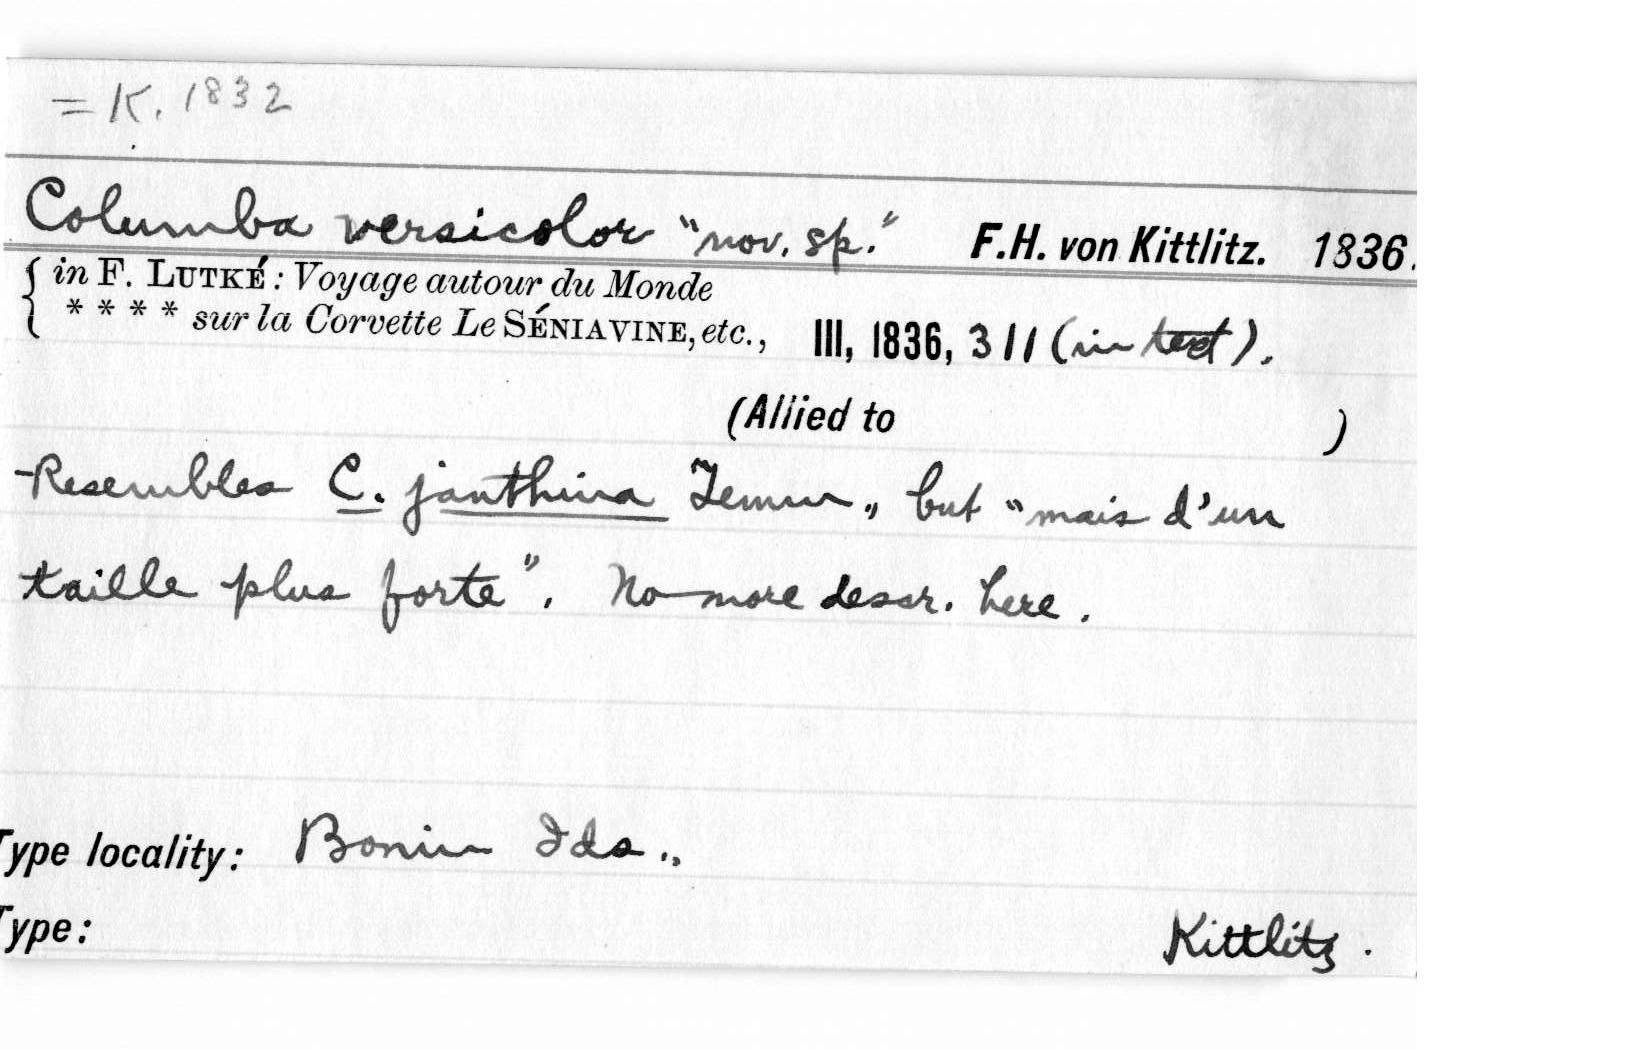 = K. 1832
Columba versicolor "nov. sp." F.H. von Kittlitz. 1836.
in F. LUTKÉ: Voyage autour du Monde
* * * * sur la Corvette Le SÉNIAVINE, etc., III, 1836, 311 (in text).
(Allied to )
Resembles C. janthina Temm., but "mais d'un
taille plus forte". No more descr. here.
Type locality: Bonin Ids.,
Type: Kittlitz.